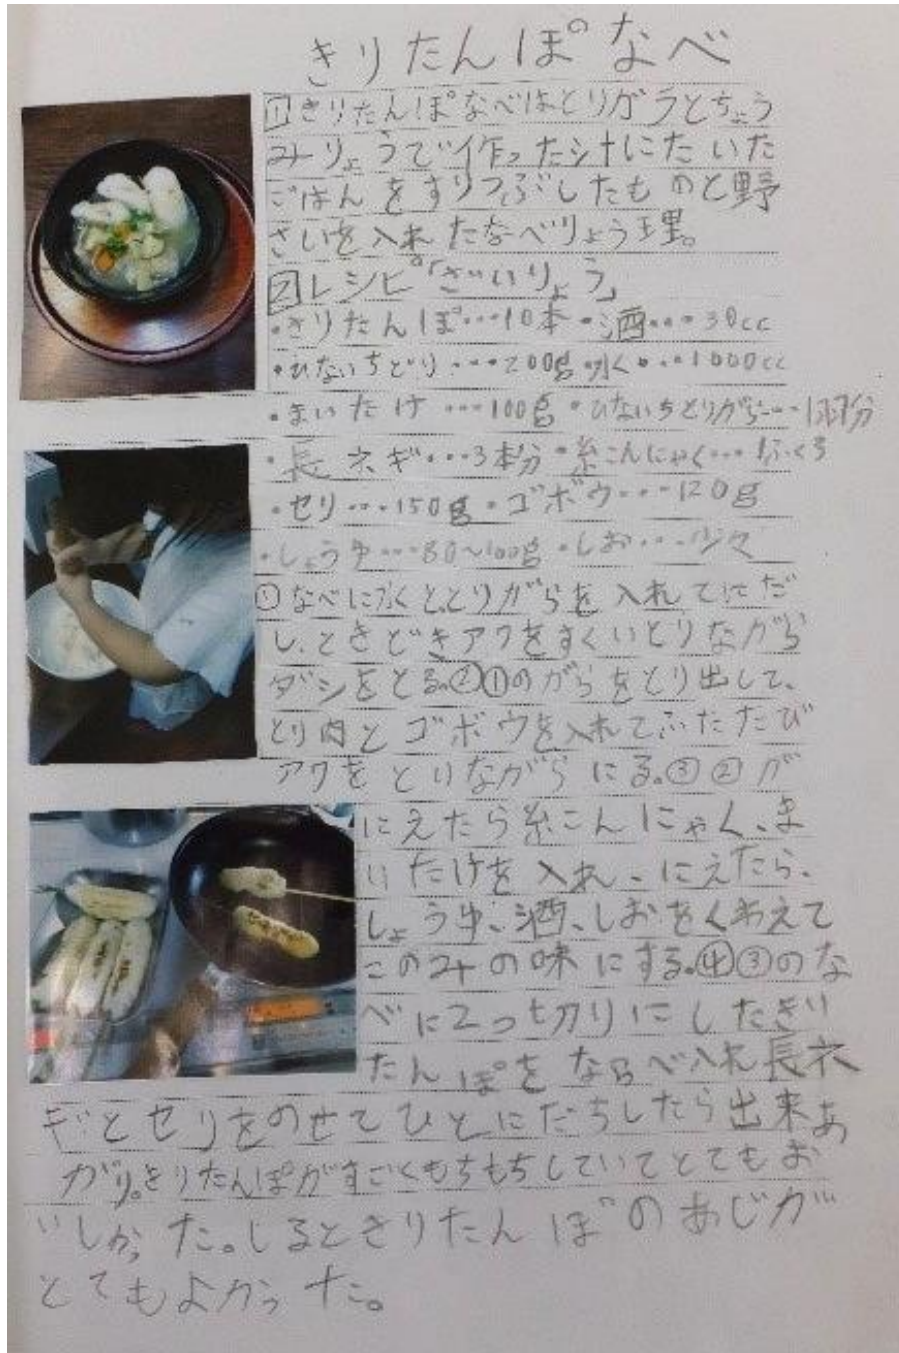 きりたんぽなべ
1きりたんぽなべはとりガラとちょう
みりょうで作った汁にたいた
ごはんをすりつぶしたものと野
さいを入れたなべりょう理。
2レシピ「ざいりょう」
・きりたんぽ…10本・酒…30cc
・ひないちどり…200g・水…1000cc
・まいたけ…100g・ひないちどりがら…1羽分
・長ネギ…3本分・糸こんにゃく…1ふくろ
・セリ…150g・ゴボウ…120g
・しょうゆ…80〜100g・しお…少々
①なべに水と、とりがらを入れてにだ
し、ときどきアワをすくいとりながら
ダシをとる。②①のがらをとり出して、
とり肉とゴボウを入れてふたたび
アワをとりながらにる。③②が
にえたら糸こんにゃく、ま
いたけを入れ、にえたら、
しょうゆ、酒、しおをくわえて
このみの味にする。④③のな
べに2つ切りにしたきり
たんぽをならべ入れ長ネ
ギとセリをのせてひとにだちしたら出来あ
がり。きりたんぽがすごくもちもちしていてとてもお
いしかった。しるときりたんぽのあじが
とてもよかった。